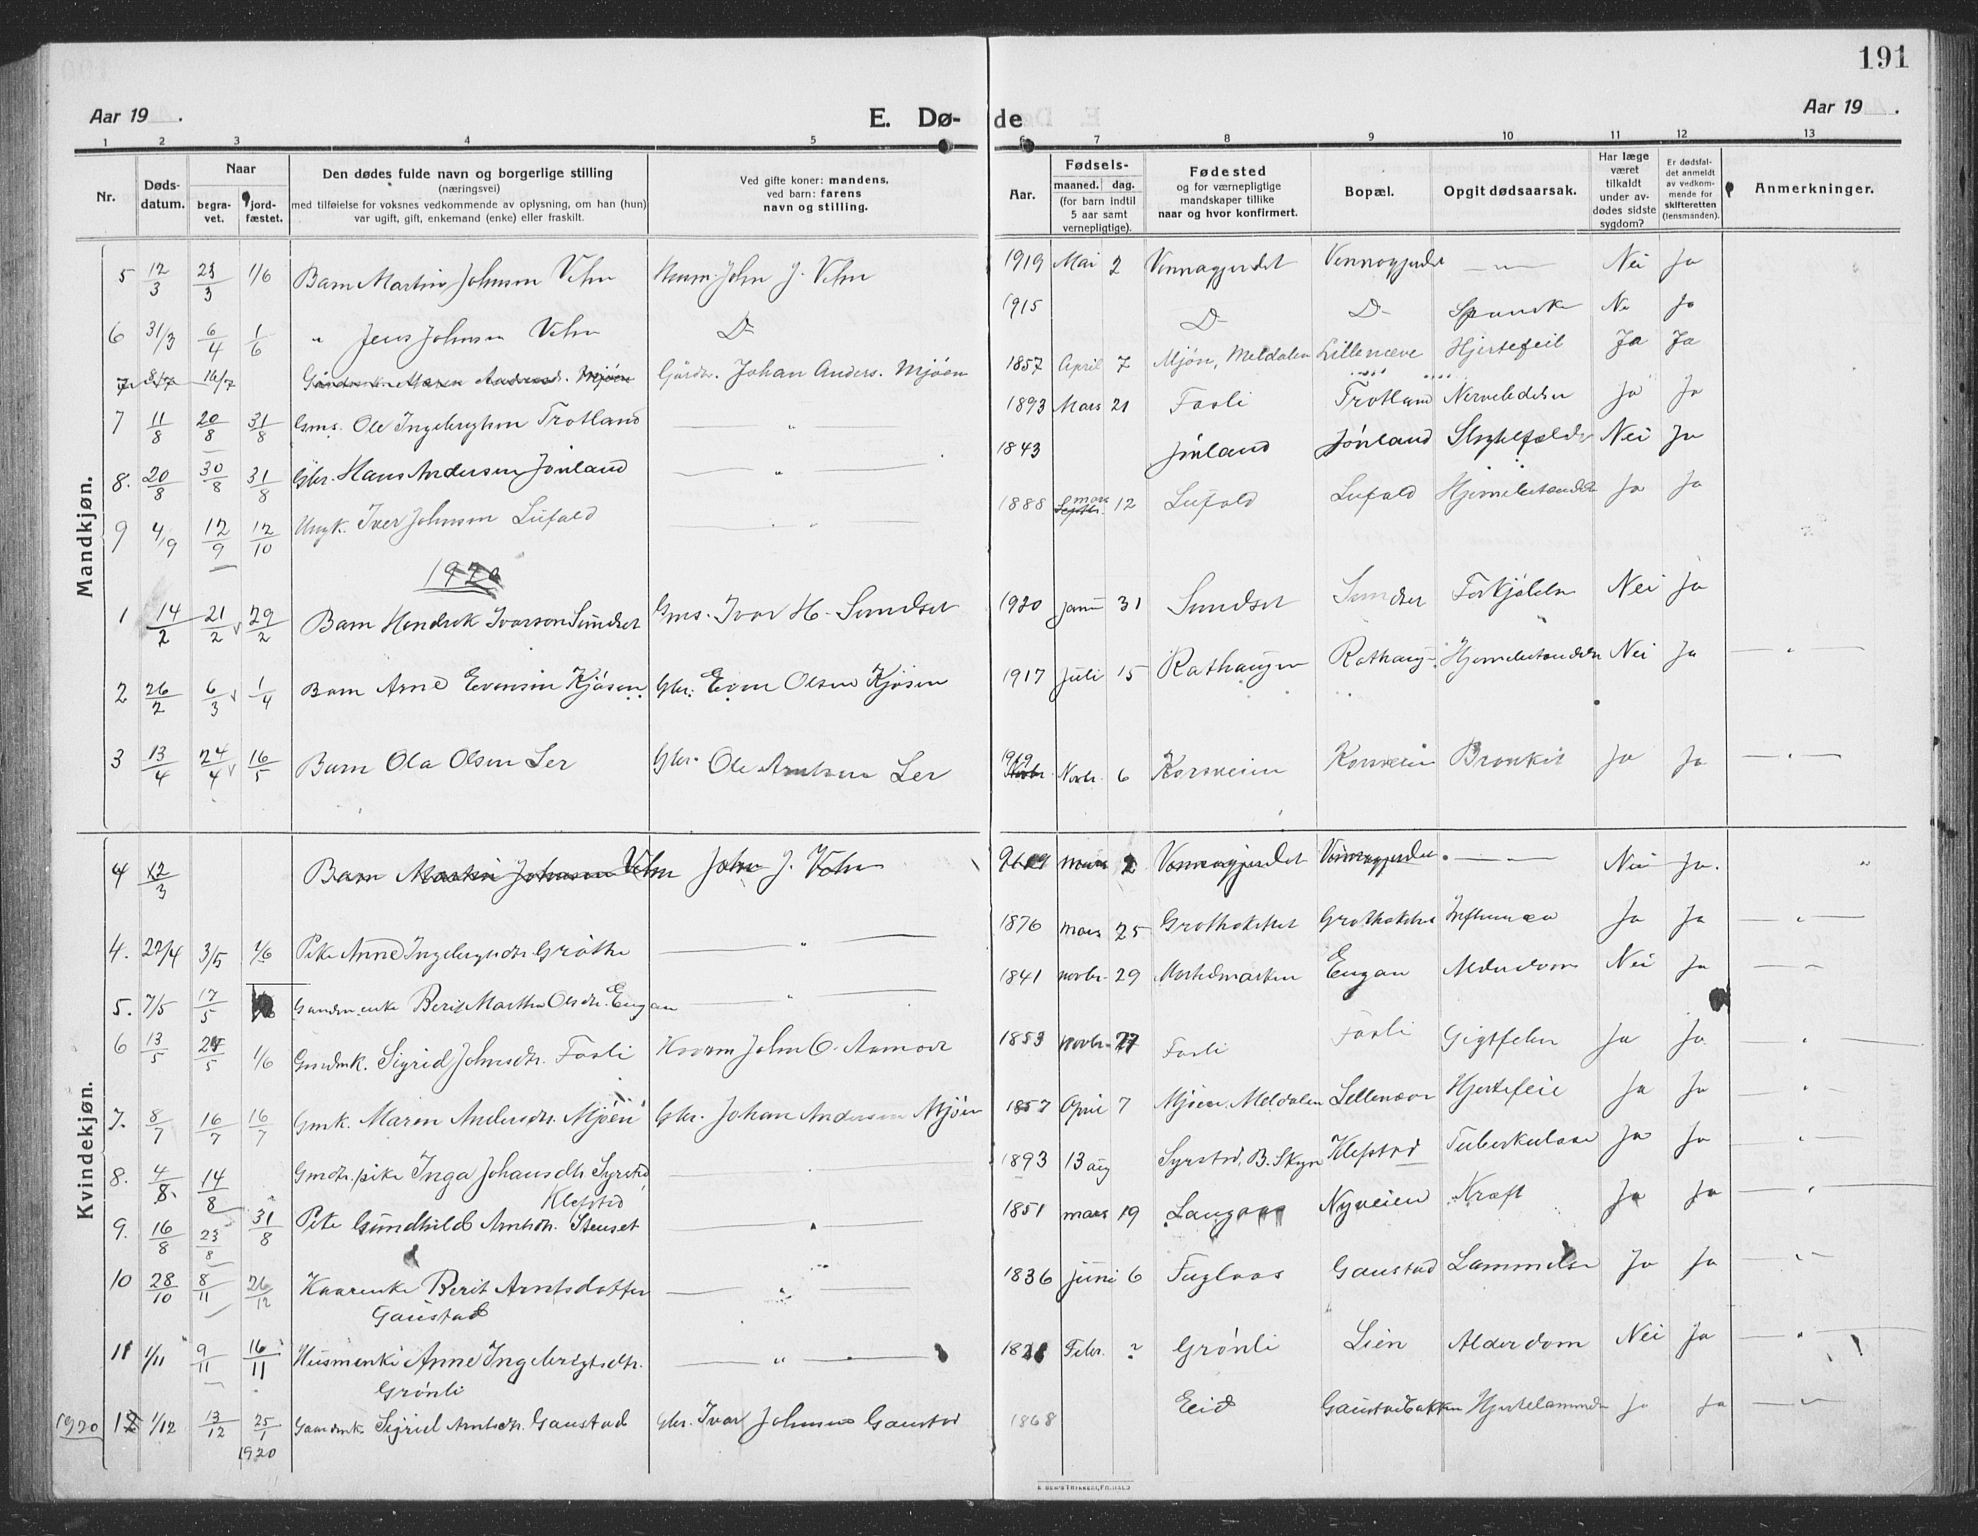 191
Aar 19 .
E. Dø-
de
Aar 19 .
1 2 3 4 5 6 7 8 9 10 11 12 13
Nr.
Døds-
datum.
Naar
begra-
vet.
jord-
fæstet.
Den dødes fulde navn og borgerlige stilling
(næringsvei)
med tilføielse for voksnes vedkommende av oplysning, om han (hun)
var ugift, gift, enkemand (enke) eller fraskilt.
Ved gifte koner: mandens,
ved barn: farens
navn og stilling.
Aar.
Fødsels-
maaned. dag.
(for barn indtil
5 aar samt
vernepligtige).
Fødested
og for værnepligtige
mandskaper tillike
naar og hvor konfirmert.
Bopæl.
Opgit dødsaarsak.
Har læge
været
tilkaldt
under av-
dødes sidste
sygdom?
Er dødsfal-
det anmeldt
av vedkom-
mende for
skifteretten
(lensmanden).
Anmerkninger.
Mandkjøn.
5 12/3 21/3 1/6 Barn Martin Johnsen Vehn John J. Vehn 1919 Mai 2 Vennagjerdet Vennagjerdet — " — Nei Ja
6 31/3 6/4 1/6 " Jens Johnsen Vehn D- 1915 D- D- Spanske Ne Ja
7 8/7 16/7 Maren Andersd. Mjøen Gårdbr. Johan Anders. Mjøen 1857 April 7 Mjøn, Meldalen Lillenæve Hjertefeil Ja Ja
7 11/8 20/8 31/8 Gms. Ole Ingebrigtsen Trotland — " — 1893 Mars 21 Fosli Trotland Nervelidelse Ja Ja
8. 20/8 30/8 31/8 Gbr. Hans Andersen Jönland — " — 1843 Jönland Jönland Nei Ja
9 4/9 12/9 12/10 Ungk. Iver Johnsen Lufald — " — 1888 Septbr. mars 12 Lufald Lufald Hjernebetændelse Ja Ja
1920
1 14/2 21/2 29/2 Barn Hendrik Ivarson Sundset Gms. Ivar H. Sundset 1920 Janu 31 Sundset Sundset Forkjölelse Nei Ja
2 26/2 6/3 1/4 Barn Arne Evensen Kjösen Gbr. Even Olsen Kjösen 1917 Juli 15 Rathaugen Rathaug. Hjernebetændelse Nei Ja — " —
3 13/4 24/4 16/5 Barn Ola Olsen Ler Gbr. Ole Arntsen Ler 1919 Novbr. 6 Korsveien Korsveien Bronkit Ja Ja — " —
Kvindekjøn.
4 12/3 Barn Martin Johnsen Vehn John J. Vehn 2 Vennagjerdet Vennagjerdet — — Nei Ja. "
4. 27/4 3/5 1/6 Pike Anne Ingebrigtsdtr. Gröthe — " — 1876 mars 25 Influensa Ja Ja — " —
5. 7/5 17/5 Berit Martha Olsdtr. Engan — " — 1841 novbr. 29 Engan Alderdom Nei Ja — " —
6 13/5 1/6 Gmdmk. Sigrid Johnsdtr. Fosli John O. Aamot 1853 novbr. 27 Fosli Fosli Gigtfeber Ja Ja — " —
7. 8/7 16/7 16/7 Gmk. Maren Andersdtr. Mjöen Gbr. Johan Andersen Mjöen 1857 April 7 Mjöen, Meldalen Hjertefeil Ja Ja "
8. 4/8. 14/8 Gmdtr. pike Inga Johansdtr. Syrstad 1893 13 aug Syrstad, B. Skyn Klefstad Tuberkulose Ja Ja "
Klefstad
9. 16/8 23/8 31/8 Pike Gundhild Arntsdtr. Stenset — " — 1851 mars 19 Nyveien Kræft Ja Ja — " —
10 28/10 8/11 26/12 Kaarenke Berit Arntsdatter — " — 1836 juni 6 Fuglaas Gaustad Lammelse Ja Ja — " —
Gaustad
11 1/11 9/11 16/11 Husmenke Anne Ingebrigtsdtr. — " — Febr. ? Grönli Lien Alderdom Nei Ja — " — !
Grönli
1920 12 1/12 13/12 25/1 Gaardmk. Sigrid Arntsdtr. Gaustad Gbr. Ivar Johnsen Gaustad 1868 Eid Gaustadbakken Hjertelammelse Ja Ja — " —
1920